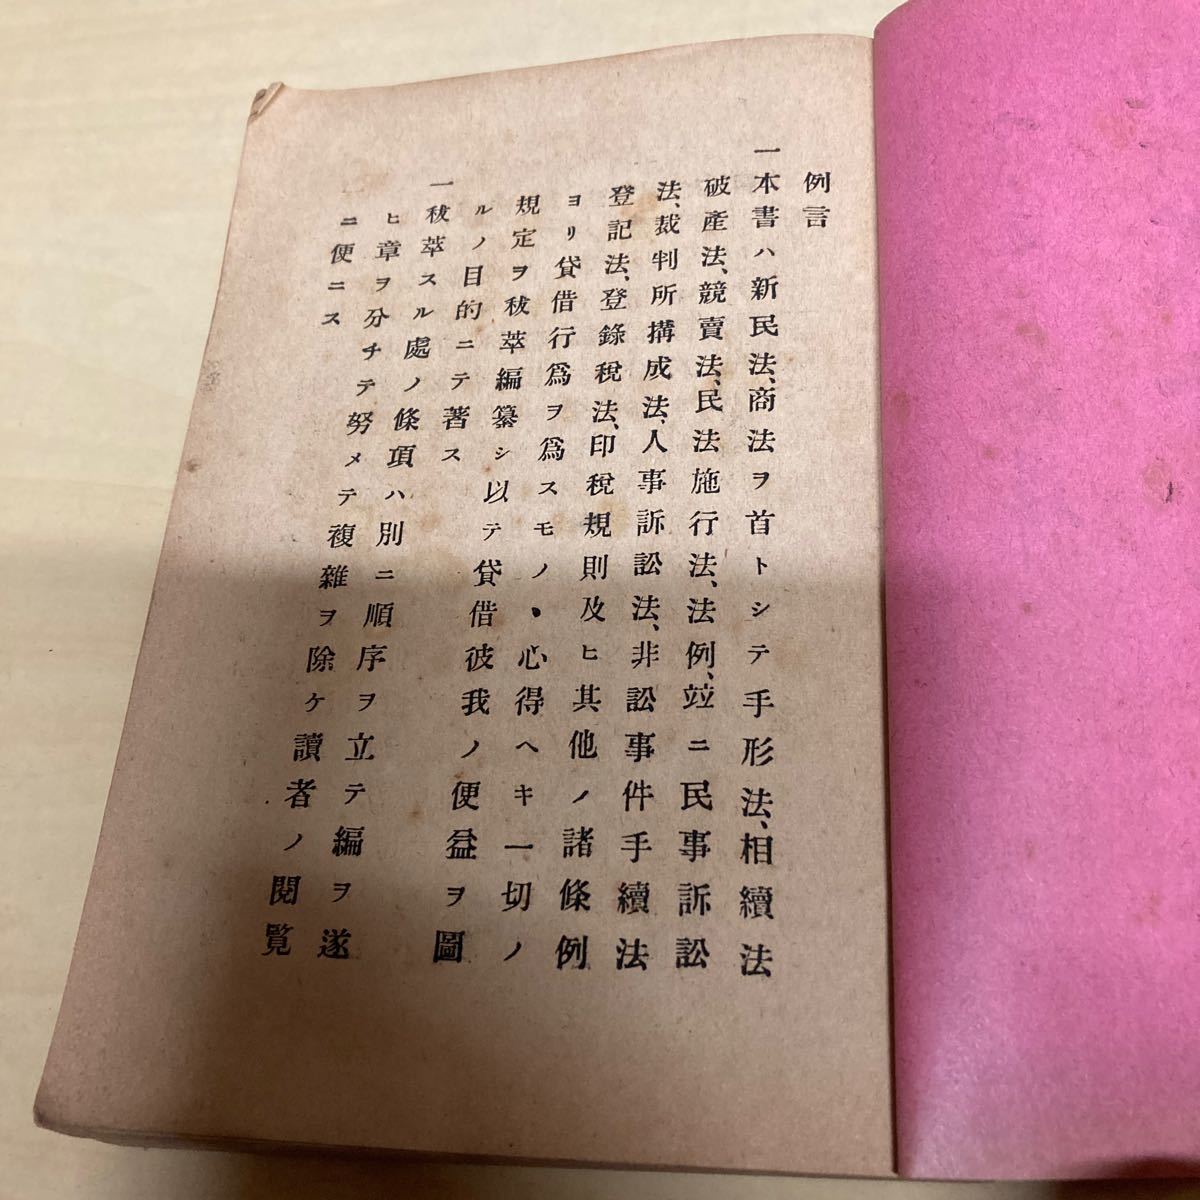 例言
一本書ハ新民法、商法ヲ首トシテ手形法、相續法
破產法、競賣法、民法施行法、法例、竝ニ民事訴訟
法、裁判所搆成法、人事訴訟法、非訟事件手續法
登記法、登錄稅法、印稅規則及ヒ其他ノ諸條例
ヨリ貸借行爲ヲ爲スモノヽ心得ヘキ一切ノ
規定ヲ秡萃編纂シ以テ貸借彼我ノ便益ヲ圖
ルノ目的ニテ著ス
一秡萃スル處ノ條項ハ別ニ順序ヲ立テ編ヲ遂
ヒ章ヲ分チテ努メテ複雜ヲ除ケ讀者ノ閱覽
ニ便ニス